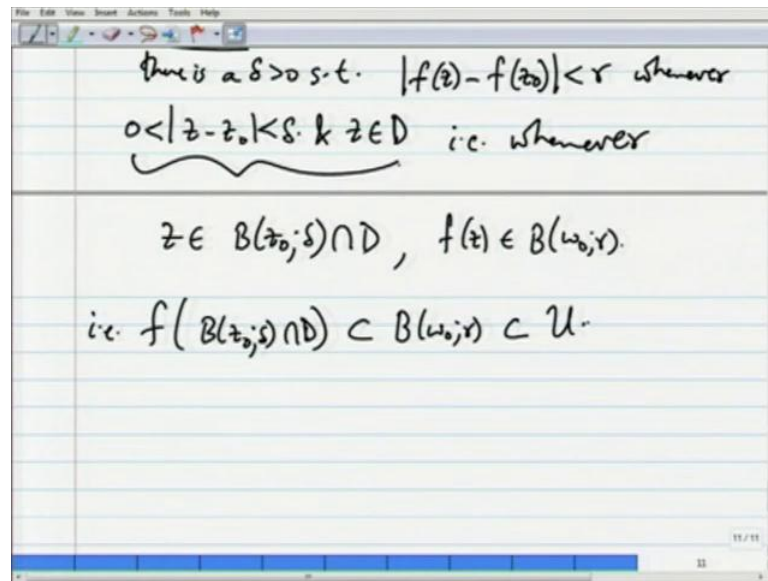 File Edit View Insert Actions Tools Help
there is a δ>0 s.t. |f(z) - f(z₀)| < r whenever
0<|z - z₀|<δ. & z∈D i.e. whenever
z ∈ B(z₀;δ)∩D, f(z) ∈ B(w₀;r).
i.e. f( B(z₀;δ)∩D) ⊂ B(w₀;r) ⊂ U.
11/11
11